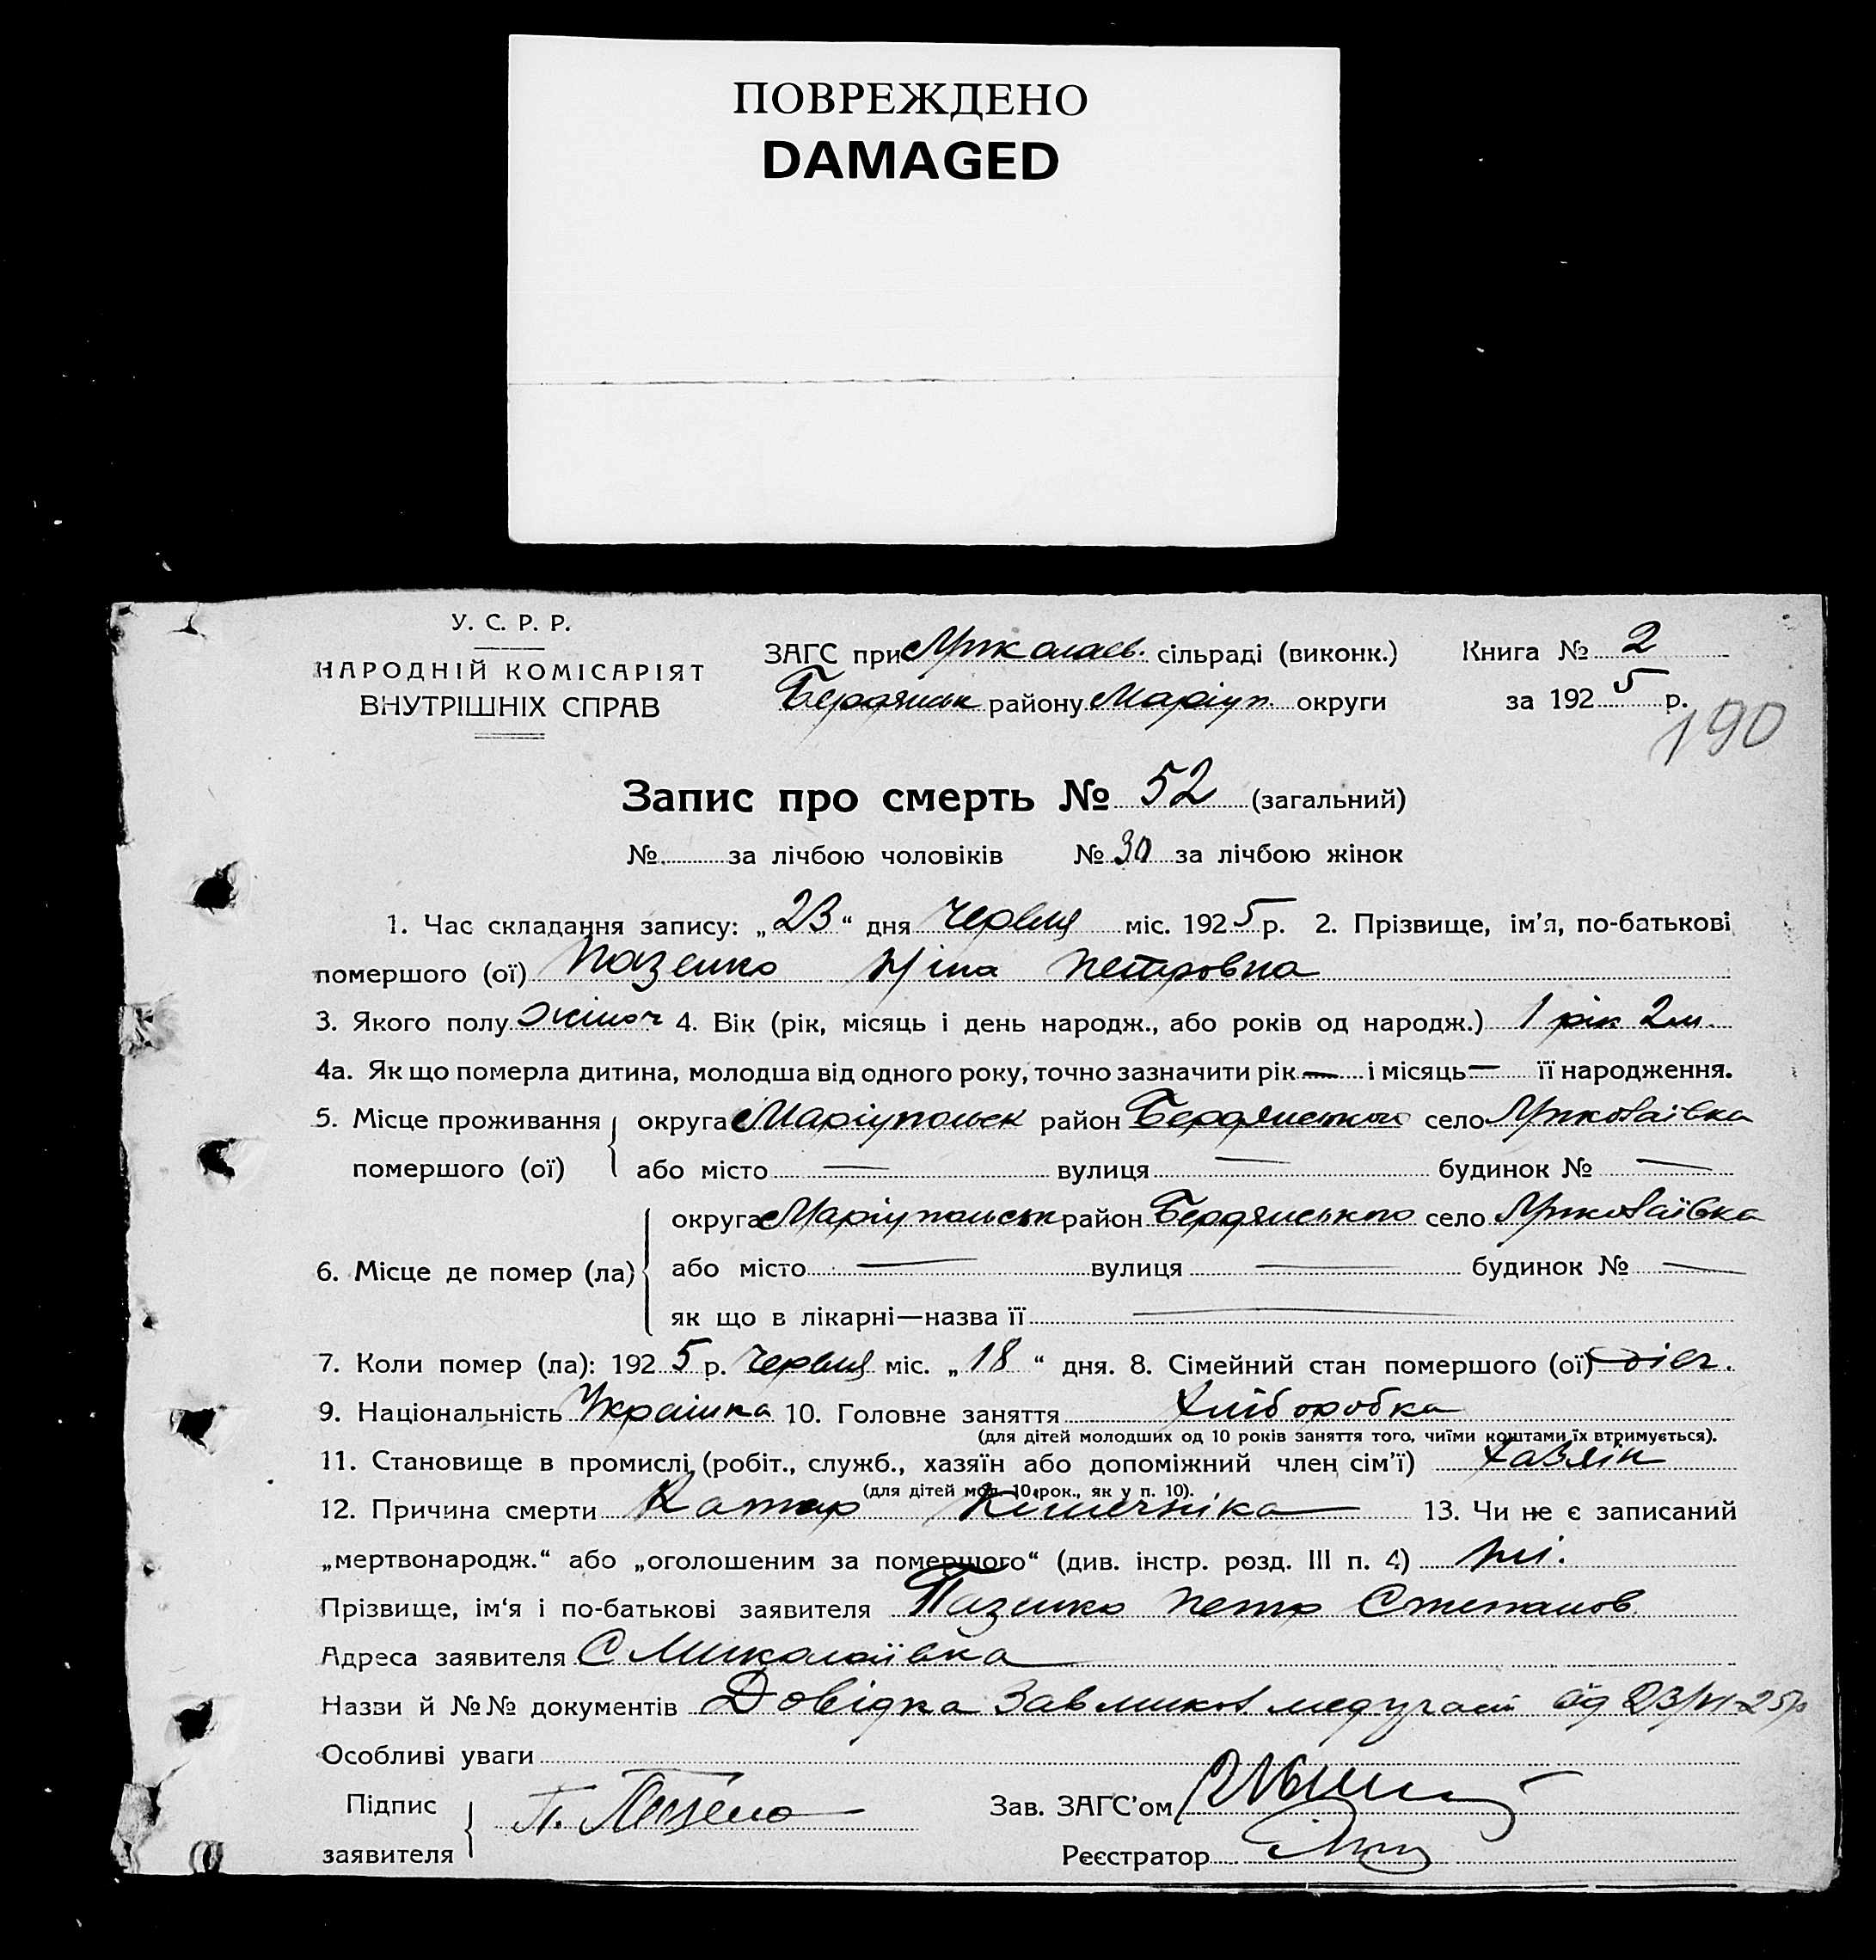 ПОВРЕЖДЕНО
DAMAGED
У. С. Р. Р.
НАРОДНІЙ КОМІСАРІЯТ
ВНУТРІШНІХ СПРАВ
ЗАГС при Миколаєв. сільраді (виконк.) Книга № 2
Бердянськ району Маріуп. округи за 1925 р.
190
Запис про смерть № 52 (загальний)
№ за лічбою чоловіків № 30 за лічбою жінок
1. Час складання запису: „23“ дня червня міс. 1925 р. 2. Прізвище, ім'я, по-батькові
помершого (ої) Пазенко Ніна Петровна
3. Якого полу жіноч 4. Вік (рік, місяць і день народж., або років од народж.) 1 рік 2 м.
4а. Як що померла дитина, молодша від одного року, точно зазначити рік — і місяць — її народження.
5. Місце проживання округа Маріупольськ район Бердянського село Миколаївка
помершого (ої) або місто — вулиця — будинок № —
округа Маріупольськ район Бердянського село Миколаївка
6. Місце де помер (ла) або місто — вулиця — будинок № —
як що в лікарні—назва її —
7. Коли помер (ла): 1925 р. червня міс. „18“ дня. 8. Сімейний стан помершого (ої) дівч.
9. Національність Українка 10. Головне заняття Хліборобка
(для дітей молодших од 10 років заняття того, чиїми коштами їх втримується).
11. Становище в промислі (робіт., служб., хазяїн або допоміжний член сім'ї) хазяїн
(для дітей мол. 10 рок., як у п. 10).
12. Причина смерти Катар Кишечніка — 13. Чи не є записаний
„мертвонародж.“ або „оголошеним за помершого“ (див. інстр. розд. III п. 4) ні.
Прізвище, ім'я і по-батькові заявителя Пазенко Петро Степанов
Адреса заявителя С Миколаївка
Назви й №№ документів Довідка Зав миков. медучаст від 23/VI-25р
Особливі уваги
Підпис П. Пазенко Зав. ЗАГС'ом
заявителя Реєстратор